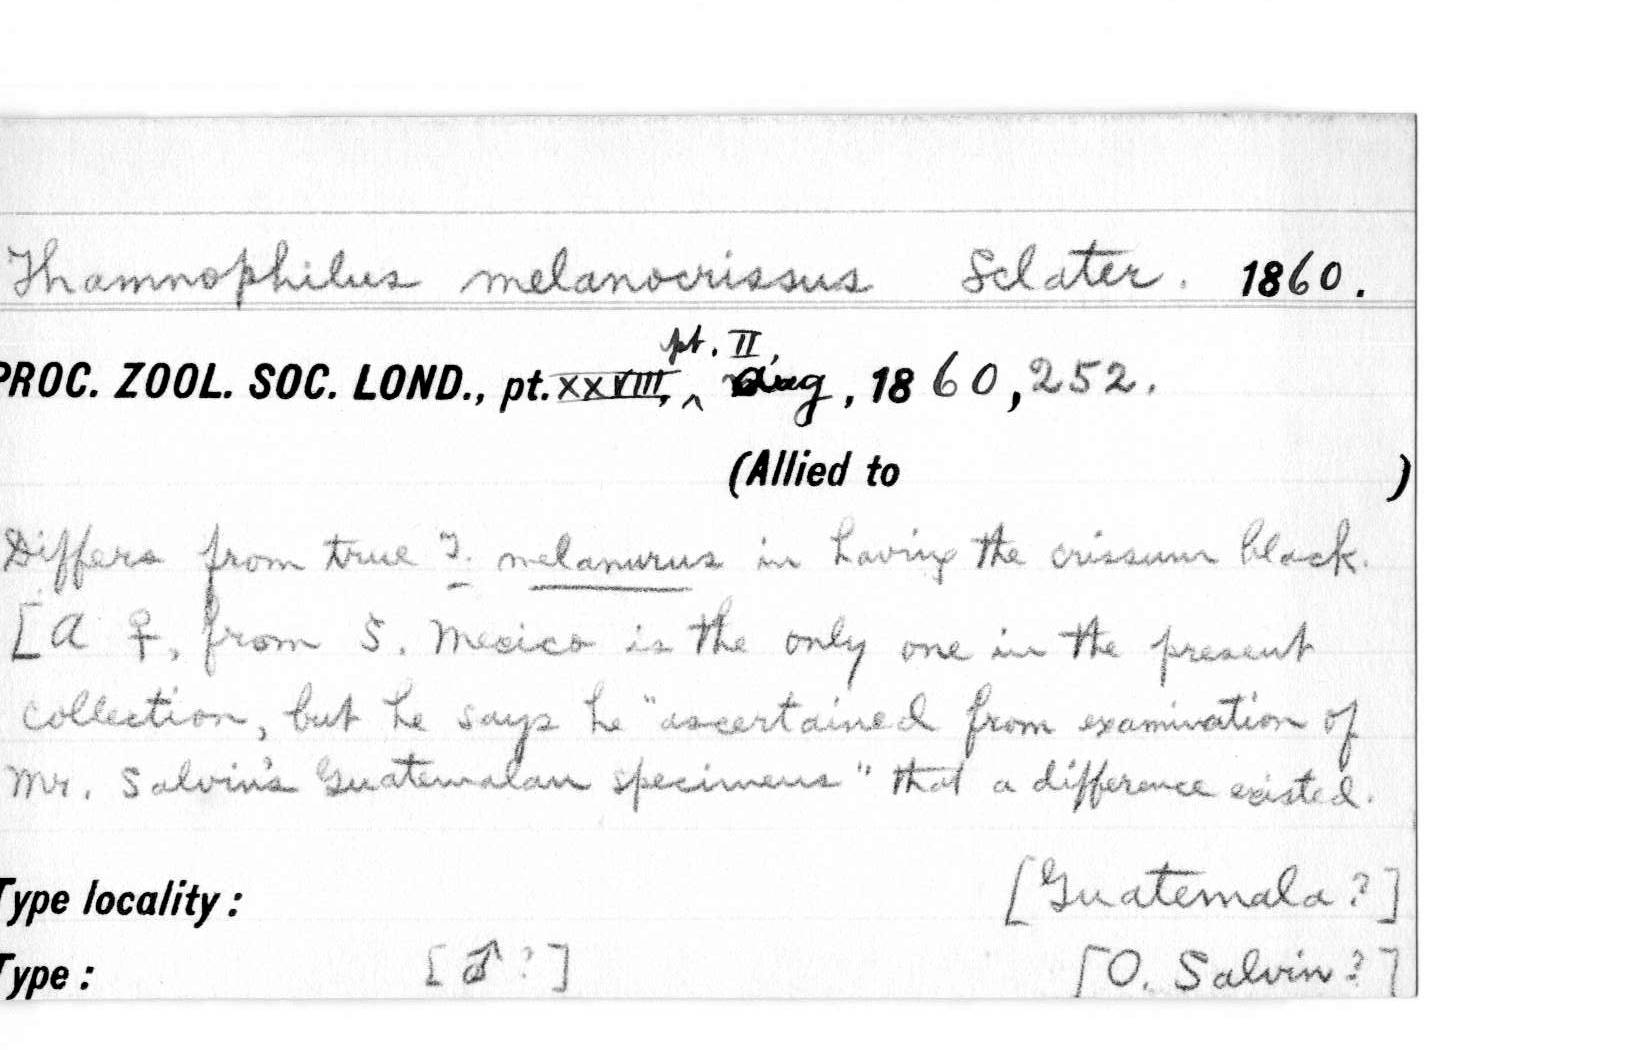 Thamnophilus melanocrissus Sclater. 1860.
pt. II,
PROC. ZOOL. SOC. LOND., pt. XXVIII, ^ Aug, 1860, 252.
(Allied to )
Differs from true T. melanurus in having the crissum black.
[A ♀, from S. Mexico is the only one in the present
collection, but he says he "ascertained from examination of
Mr. Salvin's Guatemalan specimens" that a difference existed.
[Guatemala?]
Type locality:
Type: [♂?] [O. Salvin?]